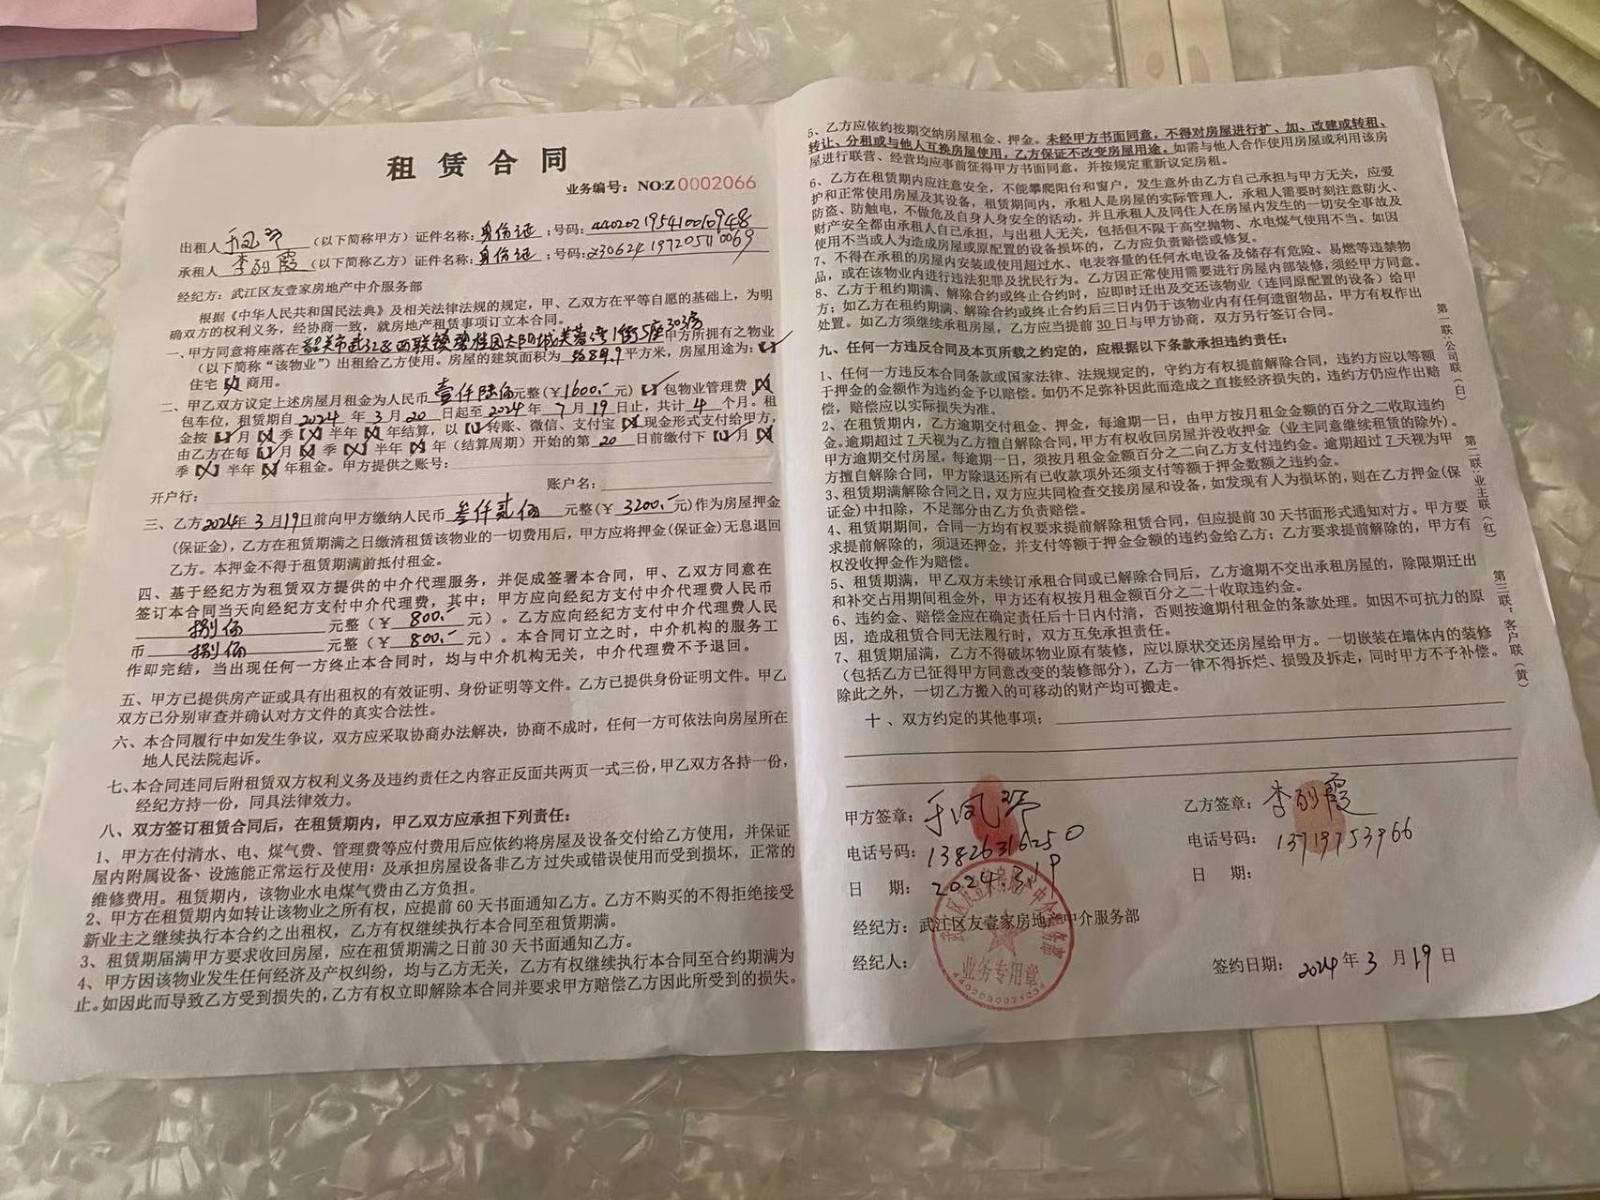 租赁合同
业务编号：NO:Z 0002066
出租人 于凤琴 （以下简称甲方）证件名称：身份证；号码：
承租人 李丽霞 （以下简称乙方）证件名称：身份证；号码：230624197205110069
经纪方：武江区友壹家房地产中介服务部
根据《中华人民共和国民法典》及相关法律法规的规定，甲、乙双方在平等自愿的基础上，为明
确双方的权利义务，经协商一致，就房地产租赁事项订立本合同。
一、甲方同意将座落在韶关市武江区西联镇碧桂园太阳城芙蓉湾1街5座303房甲方所拥有之物业
（以下简称“该物业”）出租给乙方使用。房屋的建筑面积为 平方米，房屋用途为：【✓】
住宅【×】商用。
二、甲乙双方议定上述房屋月租金为人民币 壹仟陆佰 元整（￥1600.-元）【✓】包物业管理费【×】
包车位，租赁期自 2024 年 3 月 20 日起至 2024 年 7 月 19 日止，共计 4 个月。租
金按【✓】月【×】季【×】半年【×】年结算，以【✓】转账、微信、支付宝【×】现金形式支付给甲方，
由乙方在每【✓】月【×】季【×】半年【×】年（结算周期）开始的第 20 日前缴付下【✓】月【×】
季【×】半年【×】年租金。甲方提供之账号：
开户行： 账户名：
三、乙方2024年3月19日前向甲方缴纳人民币 叁仟贰佰 元整（￥ 3200.-元)作为房屋押金
(保证金)，乙方在租赁期满之日缴清租赁该物业的一切费用后，甲方应将押金(保证金)无息退回
乙方。本押金不得于租赁期满前抵付租金。
四、基于经纪方为租赁双方提供的中介代理服务，并促成签署本合同，甲、乙双方同意在
签订本合同当天向经纪方支付中介代理费，其中：甲方应向经纪方支付中介代理费人民币
捌佰 元整（￥ 800.- 元）。乙方应向经纪方支付中介代理费人民
币 捌佰 元整（￥ 800.- 元）。本合同订立之时，中介机构的服务工
作即完结，当出现任何一方终止本合同时，均与中介机构无关，中介代理费不予退回。
五、甲方已提供房产证或具有出租权的有效证明、身份证明等文件。乙方已提供身份证明文件。甲乙
双方已分别审查并确认对方文件的真实合法性。
六、本合同履行中如发生争议，双方应采取协商办法解决，协商不成时，任何一方可依法向房屋所在
地人民法院起诉。
七、本合同连同后附租赁双方权利义务及违约责任之内容正反面共两页一式三份，甲乙双方各持一份，
经纪方持一份，同具法律效力。
八、双方签订租赁合同后，在租赁期内，甲乙双方应承担下列责任：
1、甲方在付清水、电、煤气费、管理费等应付费用后应依约将房屋及设备交付给乙方使用，并保证
屋内附属设备、设施能正常运行及使用：及承担房屋设备非乙方过失或错误使用而受到损坏，正常的
维修费用。租赁期内，该物业水电煤气费由乙方负担。
2、甲方在租赁期内如转让该物业之所有权，应提前60天书面通知乙方。乙方不购买的不得拒绝接受
新业主之继续执行本合约之出租权，乙方有权继续执行本合同至租赁期满。
3、租赁期届满甲方要求收回房屋，应在租赁期满之日前30天书面通知乙方。
4、甲方因该物业发生任何经济及产权纠纷，均与乙方无关，乙方有权继续执行本合同至合约期满为
止。如因此而导致乙方受到损失的，乙方有权立即解除本合同并要求甲方赔偿乙方因此所受到的损失。
5、乙方应依约按期交纳房屋租金、押金。未经甲方书面同意，不得对房屋进行扩、加、改建或转租、
转让、分租或与他人互换房屋使用，乙方保证不改变房屋用途。如需与他人合作使用房屋或利用该房
屋进行联营、经营均应事前征得甲方书面同意，并按规定重新议定房租。
6、乙方在租赁期内应注意安全，不能攀爬阳台和窗户，发生意外由乙方自己承担与甲方无关，应爱
护和正常使用房屋及其设备，租赁期间内，承租人是房屋的实际管理人，承租人需要时刻注意防火、
防盗、防触电，不做危及自身人身安全的活动。并且承租人及同住人在房屋内发生的一切安全事故及
财产安全都由承租人自己承担，与出租人无关，包括但不限于高空抛物、水电煤气使用不当。如因
使用不当或人为造成房屋或原配置的设备损坏的，乙方应负责赔偿或修复。
7、不得在承租的房屋内安装或使用超过水、电表容量的任何水电设备及储存有危险、易燃等违禁物
品，或在该物业内进行违法犯罪及扰民行为。乙方因正常使用需要进行房屋内部装修，须经甲方同意。
8、乙方于租约期满、解除合约或终止合约时，应即时迁出及交还该物业（连同原配置的设备）给甲
方；如乙方在租约期满、解除合约或终止合约后三日内仍于该物业内有任何遗留物品，甲方有权作出
处置。如乙方须继续承租房屋，乙方应当提前30日与甲方协商，双方另行签订合同。
九、任何一方违反合同及本页所载之约定的，应根据以下条款承担违约责任：
1、任何一方违反本合同条款或国家法律、法规规定的，守约方有权提前解除合同，违约方应以等额
于押金的金额作为违约金予以赔偿。如仍不足弥补因此而造成之直接经济损失的，违约方仍应作出赔
偿，赔偿应以实际损失为准。
2、在租赁期内，乙方逾期交付租金、押金，每逾期一日，由甲方按月租金金额的百分之二收取违约
金。逾期超过7天视为乙方擅自解除合同，甲方有权收回房屋并没收押金（业主同意继续租赁的除外）。
甲方逾期交付房屋，每逾期一日，须按月租金金额百分之二向乙方支付违约金。逾期超过7天视为甲
方擅自解除合同，甲方除退还所有已收款项外还须支付等额于押金数额之违约金。
3、租赁期满解除合同之日，双方应共同检查交接房屋和设备，如发现有人为损坏的，则在乙方押金(保
证金)中扣除，不足部分由乙方负责赔偿。
4、租赁期期间，合同一方均有权要求提前解除租赁合同，但应提前30天书面形式通知对方。甲方要
求提前解除的，须退还押金，并支付等额于押金金额的违约金给乙方；乙方要求提前解除的，甲方有
权没收押金作为赔偿。
5、租赁期满，甲乙双方未续订承租合同或已解除合同后，乙方逾期不交出承租房屋的，除限期迁出
和补交占用期间租金外，甲方还有权按月租金额百分之二十收取违约金。
6、违约金、赔偿金应在确定责任后十日内付清，否则按逾期付租金的条款处理。如因不可抗力的原
因，造成租赁合同无法履行时，双方互免承担责任。
7、租赁期届满，乙方不得破坏物业原有装修，应以原状交还房屋给甲方。一切嵌装在墙体内的装修
（包括乙方已征得甲方同意改变的装修部分），乙方一律不得拆烂、损毁及拆走，同时甲方不予补偿。
除此之外，一切乙方搬入的可移动的财产均可搬走。
十、双方约定的其他事项：
甲方签章：于凤琴 乙方签章：李丽霞
电话号码：13826316250 电话号码：13719753966
日 期：2024.3.19 日 期：
经纪方：武江区友壹家房地产中介服务部
经纪人： 签约日期：2024年3月19日
业务专用章
第一联：公司联（白）
第二联：业主联（红）
第三联：客户联（黄）